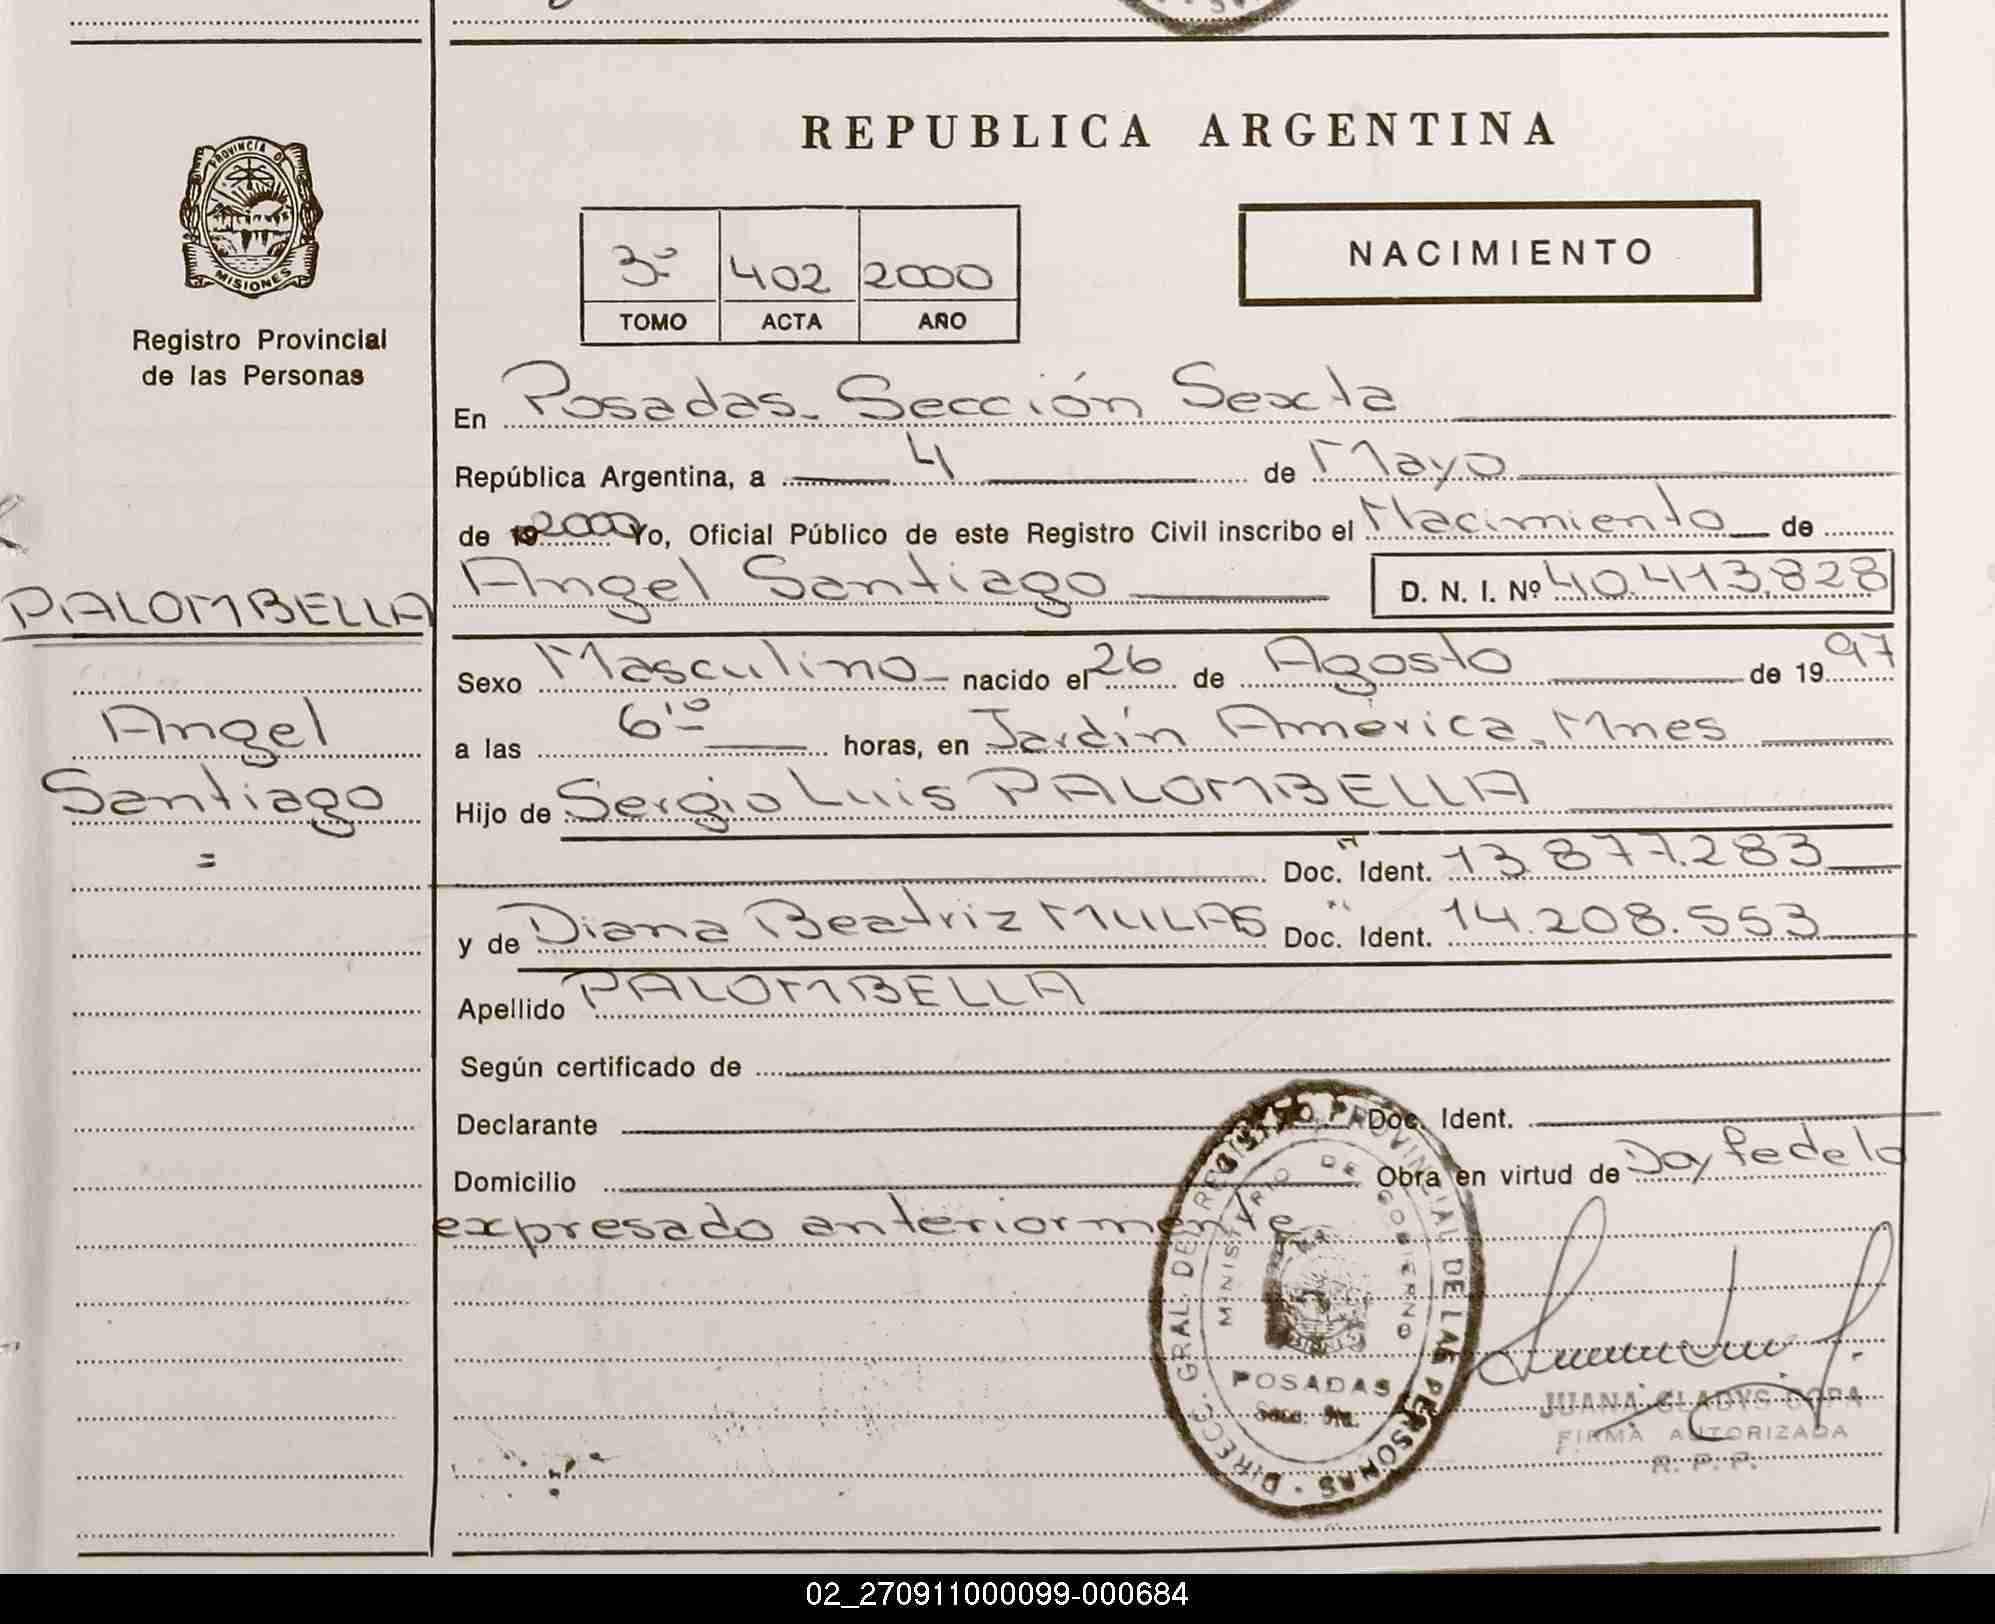 REPUBLICA ARGENTINA
PROVINCIA DE
MISIONES
Registro Provincial
de las Personas
3º 402 2000
TOMO ACTA AÑO
NACIMIENTO
En Posadas. Sección Sexta
República Argentina, a 4 de Mayo
de 19 2000 Yo, Oficial Público de este Registro Civil inscribo el Nacimiento de
PALOMBELLA
Angel Santiago D. N. I. Nº 40.413.828
Sexo Masculino nacido el 26 de Agosto de 19 97
Angel
a las 6'º horas, en Jardín América. Mnes
Santiago
Hijo de Sergio Luis PALOMBELLA
=
Doc. Ident. 13.877.283
y de Diana Beatriz MULAS Doc. Ident. 14.208.553
Apellido PALOMBELLA
Según certificado de
Declarante Doc. Ident.
Domicilio Obra en virtud de Doy fe de lo
expresado anteriormente
DIRECC. GRAL. DEL REGISTRO PROVINCIAL DE LAS PERSONAS
MINISTERIO DE GOBIERNO
POSADAS
JUANA GLADYS COPA
FIRMA AUTORIZADA
R. P. P.
02_270911000099-000684